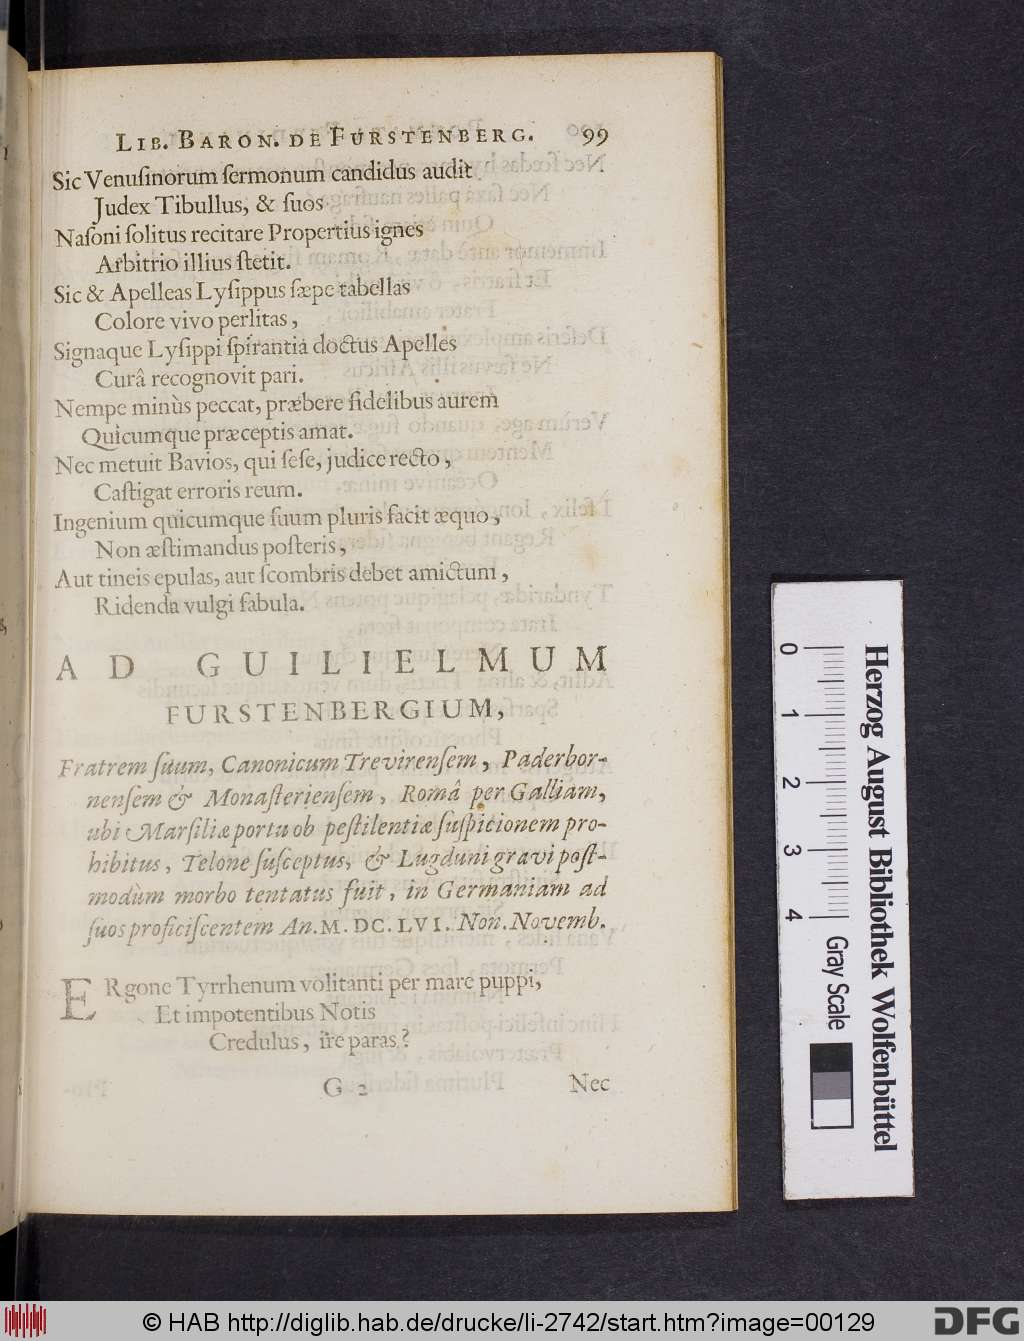 LIB. BARON. DE FURSTENBERG. 99
Sic Venuſinorum ſermonum candidus audit
Judex Tibullus, & ſuos
Naſoni ſolitus recitare Propertius ignes
Arbitrio illius ſtetit.
Sic & Apelleas Lyſippus ſæpe tabellas
Colore vivo perlitas,
Signaque Lyſippi ſpirantia doctus Apelles
Curâ recognovit pari.
Nempe minùs peccat, præbere fidelibus aurem
Quicumque præceptis amat.
Nec metuit Bavios, qui ſeſe, judice recto,
Caſtigat erroris reum.
Ingenium quicumque ſuum pluris facit æquo,
Non æſtimandus poſteris,
Aut tineis epulas, aut ſcombris debet amictum,
Ridenda vulgi fabula.
AD GUILIELMUM
FURSTENBERGIUM,
Fratrem ſuum, Canonicum Trevirenſem, Paderbor-
nenſem & Monaſterienſem, Româ per Galliam,
ubi Marſiliæ portu ob peſtilentiæ ſuſpicionem pro-
hibitus, Telone ſuſceptus, & Lugduni gravi poſt-
modùm morbo tentatus fuit, in Germaniam ad
ſuos proficiſcentem An. M. DC. LVI. Non. Novemb.
ERgone Tyrrhenum volitanti per mare puppi,
Et impotentibus Notis
Credulus, ire paras?
G 2 Nec
0 1 2 3 4 Gray Scale
Herzog August Bibliothek Wolfenbüttel
© HAB http://diglib.hab.de/drucke/li-2742/start.htm?image=00129
DFG